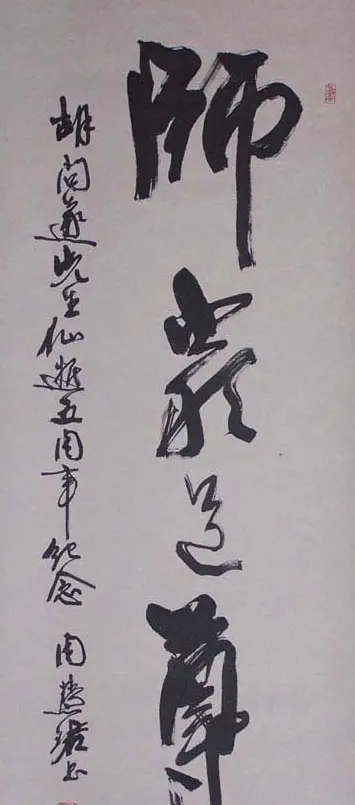 師嚴道尊
胡问遂先生仙逝五周年纪念 周慧珺书